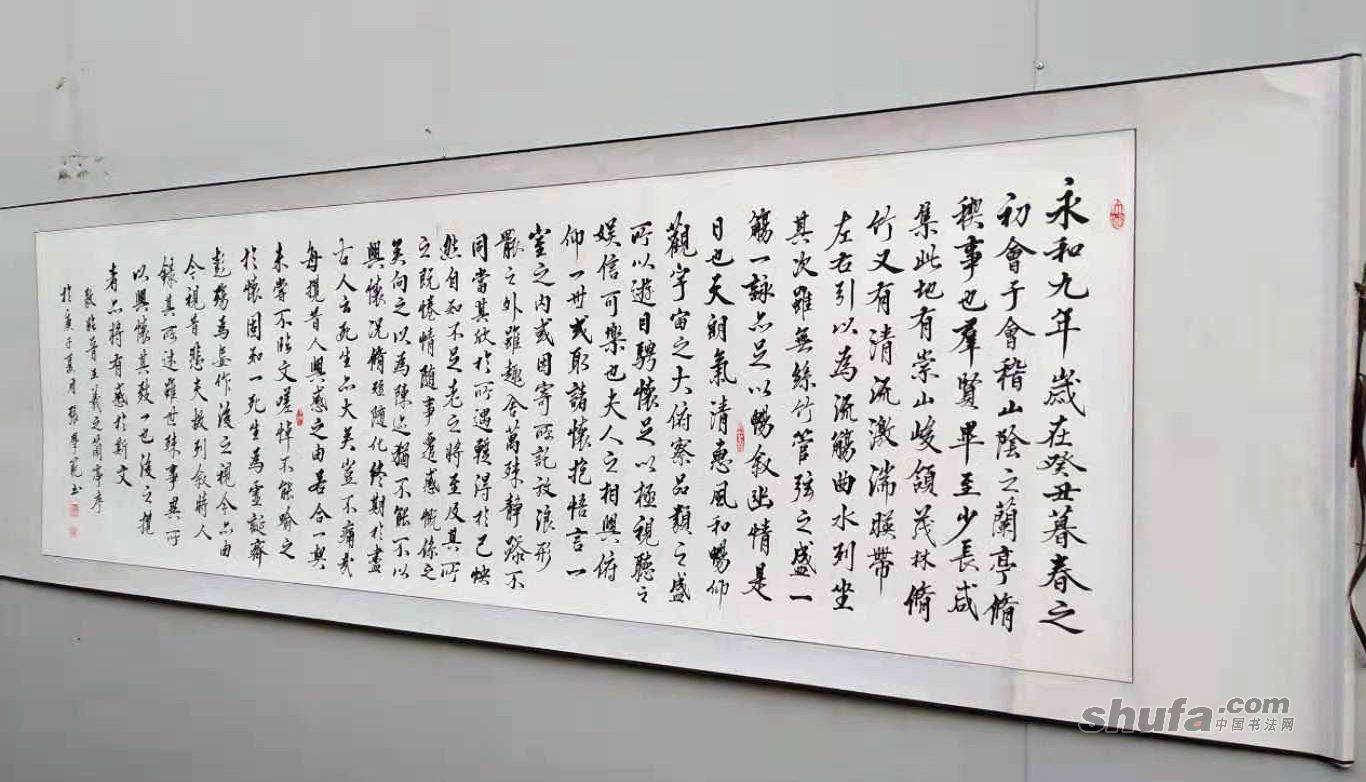 永和九年歲在癸丑暮春之
初會于會稽山陰之蘭亭脩
稧事也羣賢畢至少長咸
集此地有崇山峻領茂林脩
竹又有清流激湍暎帶
左右引以為流觴曲水列坐
其次雖無絲竹管弦之盛一
觴一詠亦足以暢敘幽情是
日也天朗氣清惠風和暢仰
觀宇宙之大俯察品類之盛
所以遊目騁懷足以極視聽之
娛信可樂也夫人之相與俯
仰一世或取諸懷抱悟言一
室之內或因寄所託放浪形
骸之外雖趣舍萬殊靜躁不
同當其欣於所遇輙得於己怏
然自知不足老之將至及其所
之既惓情隨事遷感慨係之
矣向之以為陳迹猶不能不以
興懷況脩短隨化終期於盡
古人云死生亦大矣豈不痛哉
每攬昔人興感之由若合一契
未嘗不臨文嗟悼不能喻之
於懷固知一死生為虛誕齊
彭殤為妄作後之視今亦由
今視昔悲夫故列敘時人
錄其所述雖世殊事異所
以興懷其致一也後之攬
者亦將有感於斯文
敬臨晉王羲之蘭亭序
於庚子夏月張學
shufa.com
中国书法网